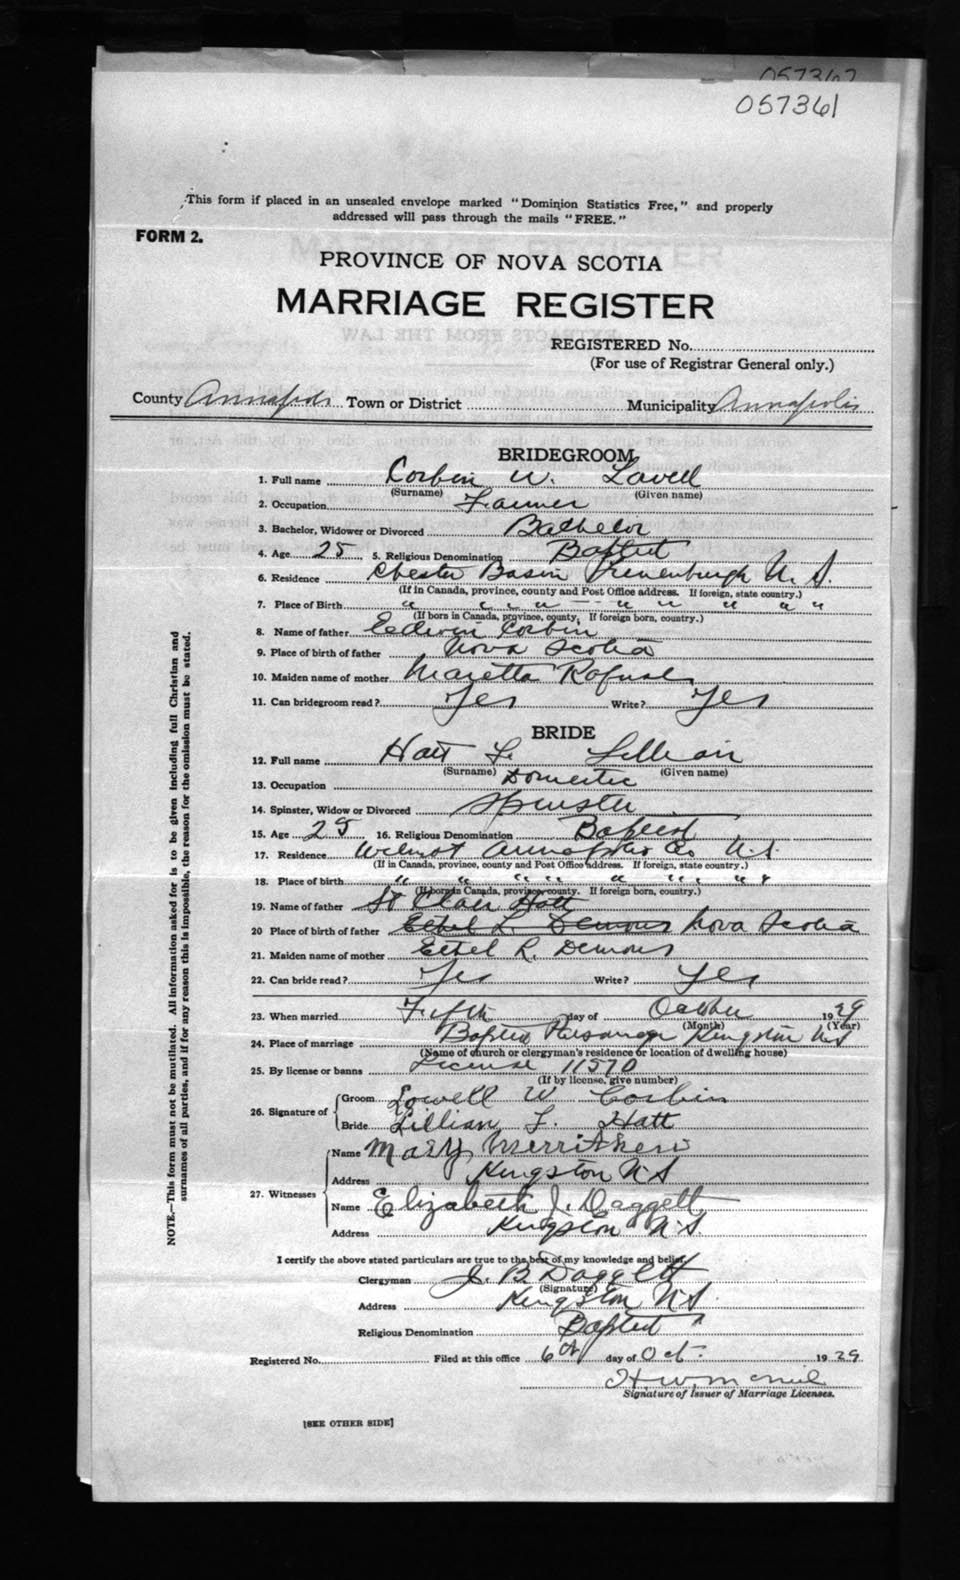 057367
057361
This form if placed in an unsealed envelope marked "Dominion Statistics Free," and properly
addressed will pass through the mails "FREE."
FORM 2.
PROVINCE OF NOVA SCOTIA
MARRIAGE REGISTER
REGISTERED No.
(For use of Registrar General only.)
County Annapolis Town or District Municipality Annapolis
BRIDEGROOM
1. Full name Corbin W. Lovell
(Surname) (Given name)
2. Occupation Farmer
3. Bachelor, Widower or Divorced Bachelor
4. Age 25 5. Religious Denomination Baptist
6. Residence Chester Basin Lunenburgh N. S.
(If in Canada, province, county and Post Office address. If foreign, state country.)
7. Place of Birth " " " " " " " "
(If born in Canada, province, county. If foreign born, country.)
8. Name of father Edwin Corbin
9. Place of birth of father Nova Scotia
10. Maiden name of mother Maretta Rafuse
11. Can bridegroom read? Yes Write? Yes
BRIDE
12. Full name Hatt L. Lillian
(Surname) (Given name)
13. Occupation Domestic
14. Spinster, Widow or Divorced Spinster
15. Age 25 16. Religious Denomination Baptist
17. Residence Wilmot Annapolis Co N.S.
(If in Canada, province, county and Post Office Address. If foreign, state country.)
18. Place of birth " " " " " " " "
(If born in Canada, province, county. If foreign born, country.)
19. Name of father St Clair Hatt
20 Place of birth of father Ethel L. Demons Nova Scotia
21. Maiden name of mother Ethel R. Demons
22. Can bride read? Yes Write? Yes
23. When married Fifth day of October 1929
(Month) (Year)
24. Place of marriage Baptist Parsonage Kingston N.S
(Name of church or clergyman's residence or location of dwelling house)
25. By license or banns License 11570
(If by license, give number)
26. Signature of Groom Lowell W Corbin
Bride Lillian L. Hatt
27. Witnesses Name Mary Merrithew
Address Kingston N.S
Name Elizabeth J. Daggett
Address Kingston N.S.
I certify the above stated particulars are true to the best of my knowledge and belief.
Clergyman J. B. Daggett
(Signature)
Address Kingston N.S.
Religious Denomination Baptist
Registered No. Filed at this office 6th day of Oct. 1929
H. W. McNeil
Signature of Issuer of Marriage Licenses.
[SEE OTHER SIDE]
NOTE.—This form must not be mutilated. All information asked for is to be given including full Christian and
surnames of all parties, and if for any reason this is impossible, the reason for the omission must be stated.